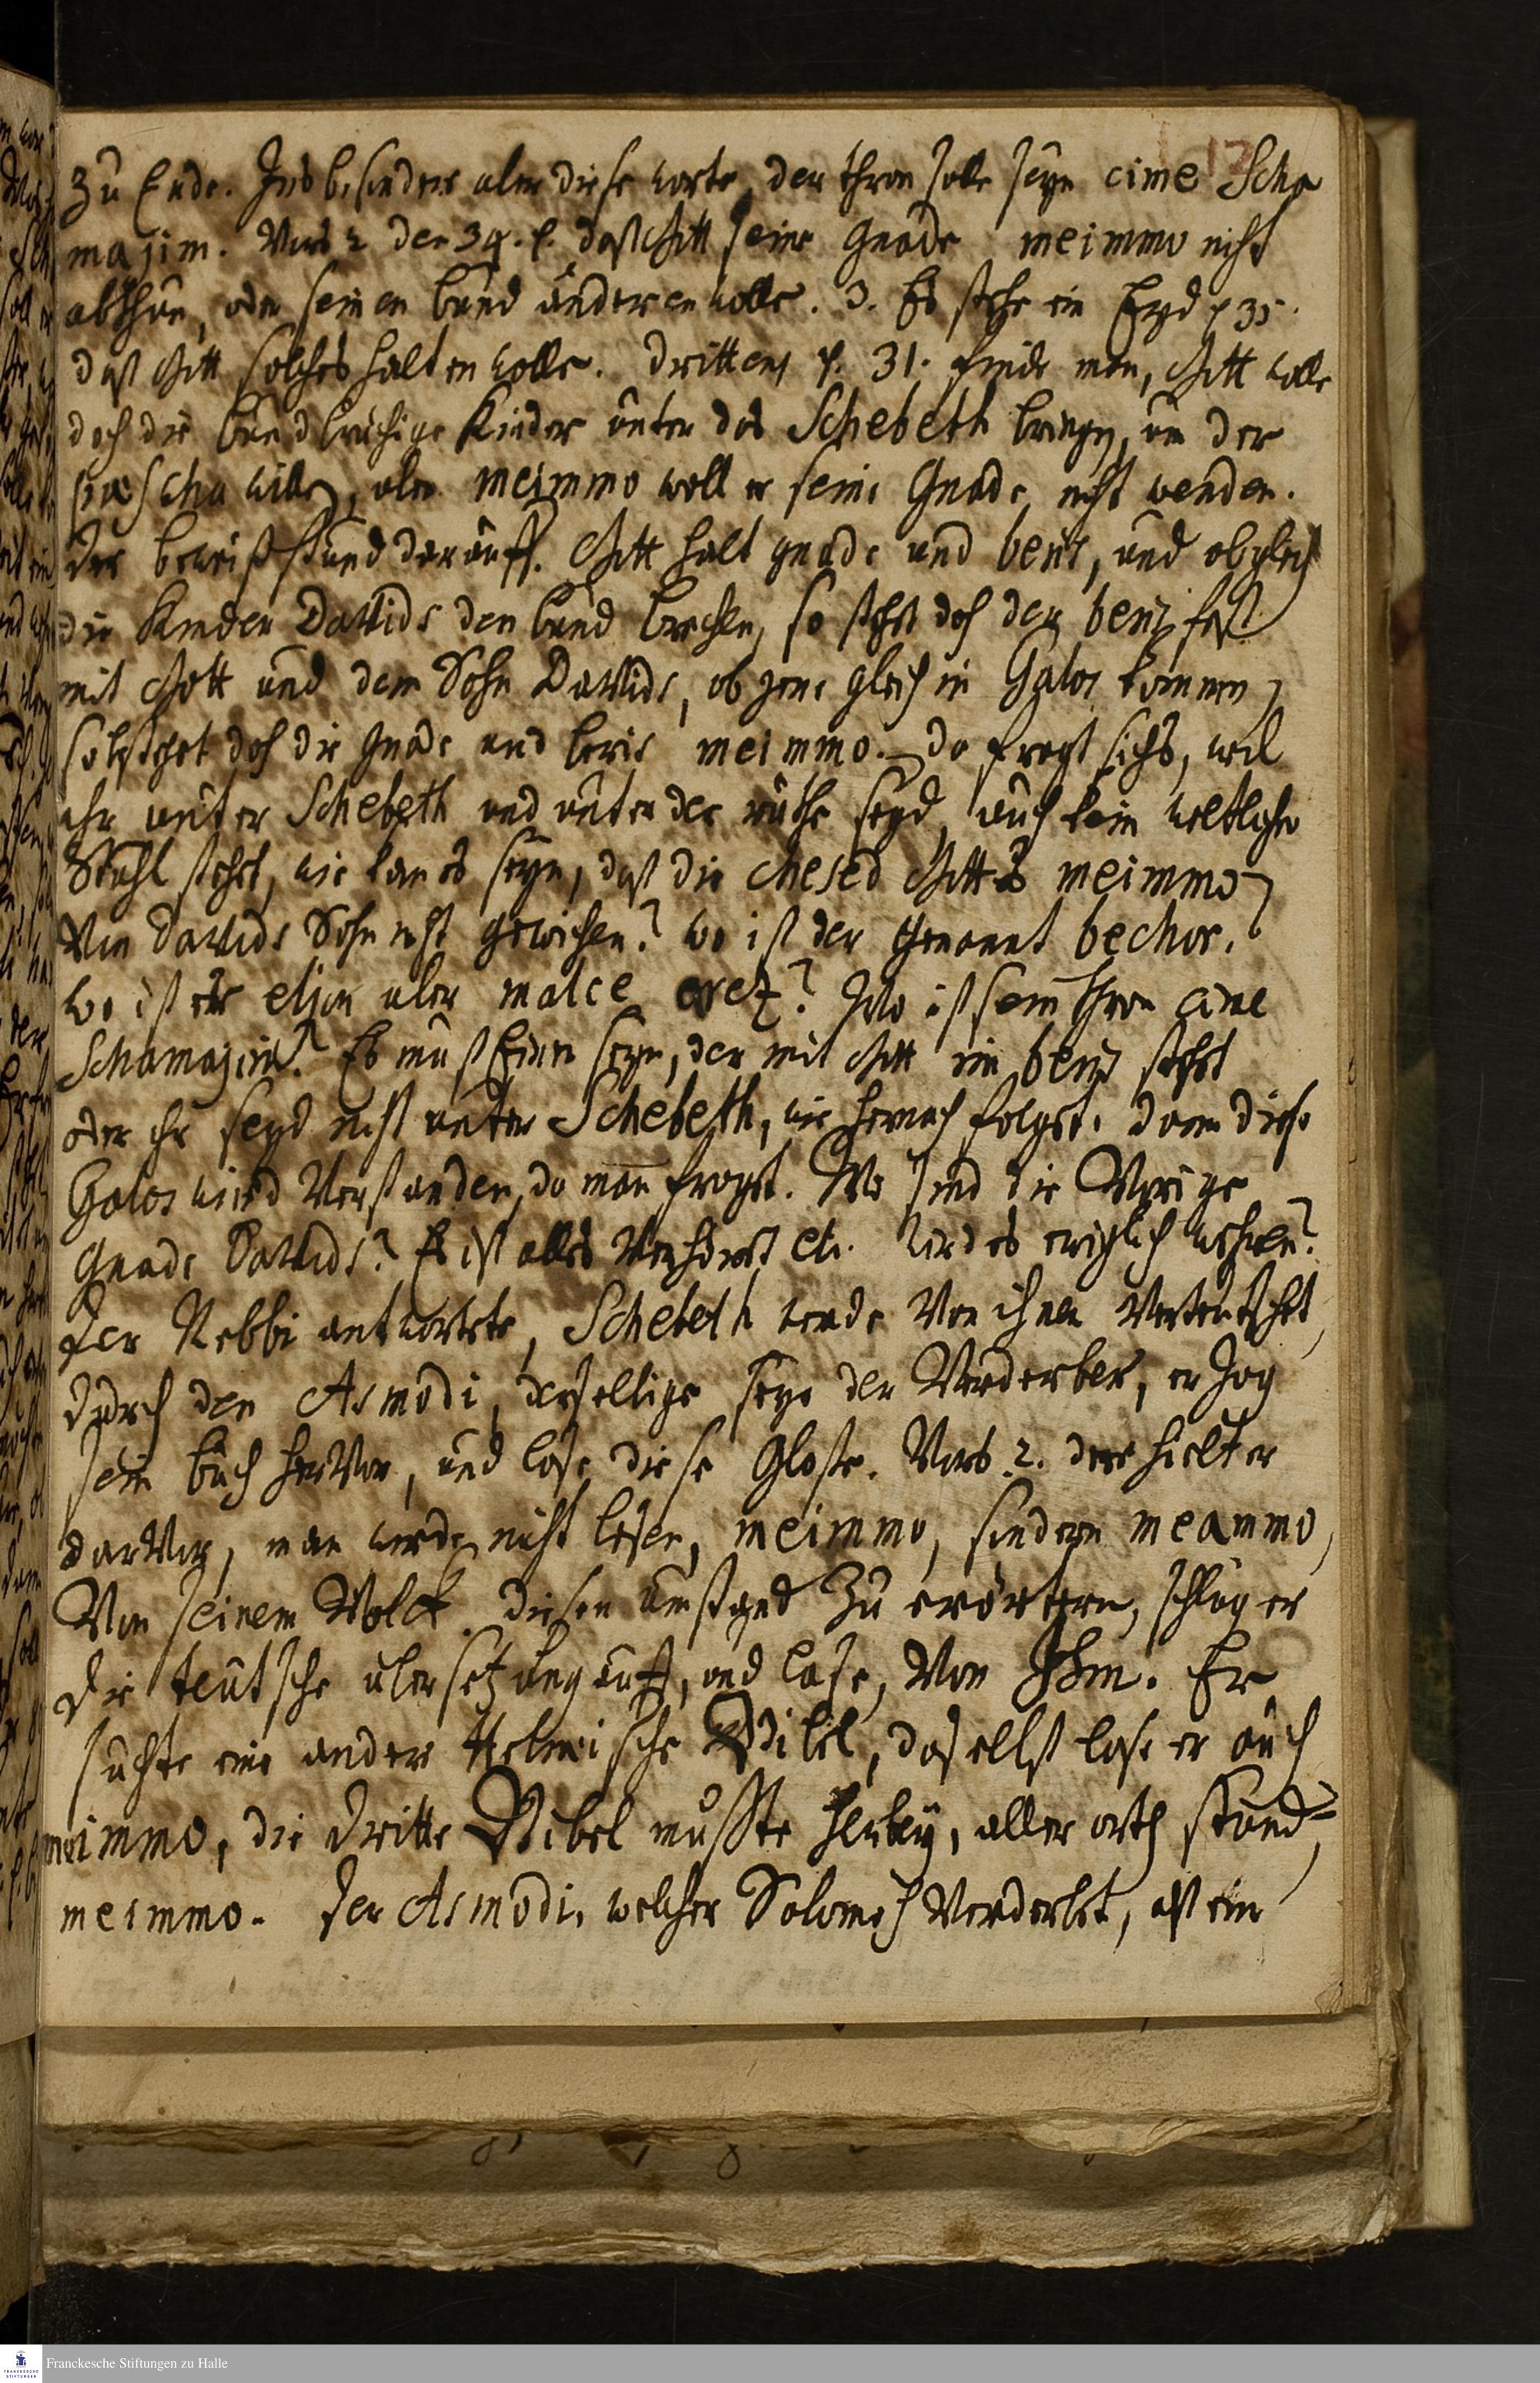 zu Ende. Insbesonders aber diese worte, der thron solle seyn cime Scha
majim. Vors 2 der 34. v. daß Gott seine Gnade meimmo nicht
abthun, oder seinen bund änderen wolle. 3. Es stehe ein Eyd v 35.
daß Gott solches halten wolle. drittens v. 31. finde man, Gott wolle
doch die bundbrüchige Kinder unter das Schebeth bringen, um der
willen, aber meimmo woll er seine Gnade nicht wenden.
der beweiß stund darauff. Gott halt gnade und beris, und obgleich
die Kinder Davids den bund brechen, so stehet doch der beris fest
mit Gott und dem Sohn Davids, ob jene gleich in Galos kommen,
so stehet doch die Gnade und beris meimmo. da fragt sichs, weil
ihr unter Schebeth und unter der ruthe seyd, auch kein weltlicher
Stuhl stehet, wie kan es seyn, daß die chesed Gottes meimmo
Von Davids Sohn nicht gewichen? wo ist der genannt bechor.
wo ist er eljon uber malce erez? Wo ist sein thron cime
Schamajim? Es muß Einer seyn, der mit Gott im beris stehet
oder ihr seyd nicht unter Schebeth, wie hernach folget. dann diese
Galos wird Verstanden, da man fraget. Wo sind die Vorige
Gnade Davids? Es ist alles Verstöret etc. Wird es ewiglich währen?
Der Rebbi antwortete, Schebeth werde Von ihnen Verteutschet,
durch den Asmodi, derselbige seye der Verderber, er zog
sein buch hervor, und lase diese Glosse. Vors 2. dere hielt er
darvor, man werde nicht lesen, meimmo, sondern meammo,
Von seinem Volck. diesen umstand zu erörtern, schlug er
die teutsche ubersetzung auff, und lase, Von Ihm. Er
suchte eine andere Hebreische Bibel, daselbst lase er auch
meimmo, die dritte Bibel muste herbey, aller orth stund
meimmo. Der Asmodi, welcher Salomoh Verderbet, ist ein
Franckesche Stiftungen zu Halle